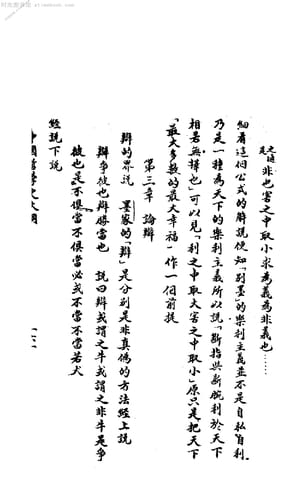 非也害之中取小求為義為非義也……
細看這個公式的解說便知「別墨」的樂利主義並不是自私自利
乃是一種為天下的樂利主義所以說「斷指與斷腕利於天下
相若無擇也」可以見「利之中取小」原只是把天下
「最大多數的最大幸福」作一個前提
第三章 論辯
辯的界說 墨家的「辯」是分別是非真偽的方法經上說
辯爭彼也辯勝當也 說曰辯或謂之牛或謂之非牛是爭
彼也是不俱當不俱當必或不當不當若犬
經說下說